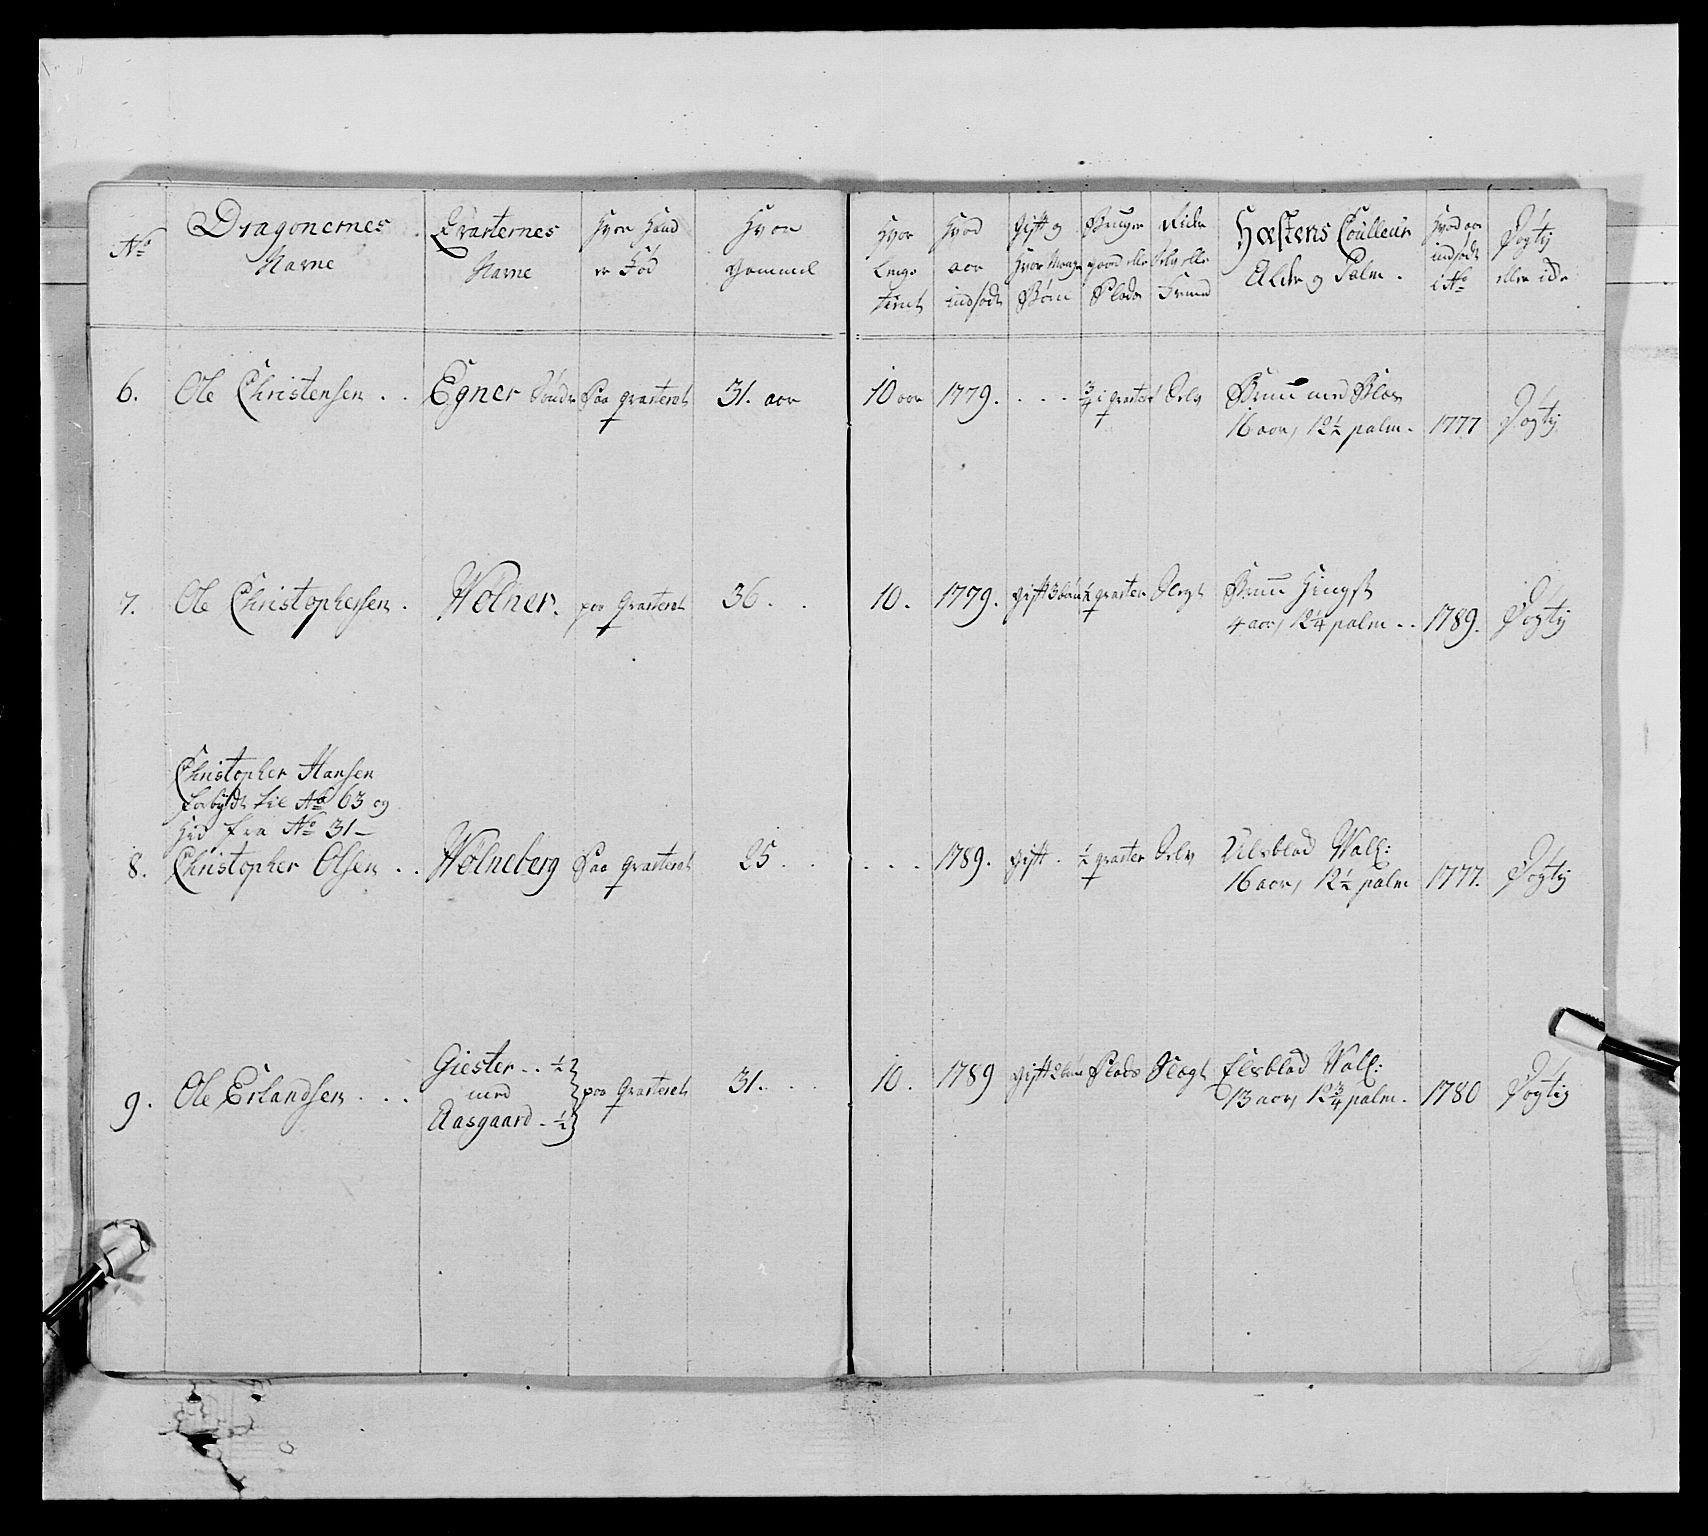 No
Dragonernes
Navne
Qvarternes
Navne
Hvor Hand
er Fød
Hvor
gammel
Hvor
Lenge
tient
Hvad
aar
indsødt
Gift og
Hvor Mange
Børn
Bruger
gaard eller
Plads
Rider
Selv eller
Fremmed
Hæstens Coulleur
Alder og Palm.
Hvad aar
indsødt
i No
Døgtig
eller icke
6. Ole Christensen . . Egner Søndre Paa qvarteret 31. aar 10 aar 1779. . . . 3/4 i qvarteret Selv Bruun med Blas
16 aar, 12 1/2 palm. 1777 Døgtig
7. Ole Christophersen . Wølner. paa Qvarteret 36. . 10. 1779. gift 3 børn 1/2 qvarter Bruun Hingst
4 aar, 12 1/4 palm . . 1789. Døgtig
Christopher Hansen
forbydt til No 63 og
Hid fra No 31 –
8. Christopher Olsen . . Wølneberg Paa qvarteret 25 . . . . . 1789. gift . 1/2 qvarter Selv Ulsblad Wall:
16 aar, 12 1/2 palm 1777. Døgtig
9. Ole Erlandsen . . . Giester . . 1/2
med
Aasgaard . 1/2 paa Qvarteret 31. . . 10. 1789 gift 2 børn Plads Elsblad Wall:
13 aar, 12 3/4 palm. 1780 Døgtig